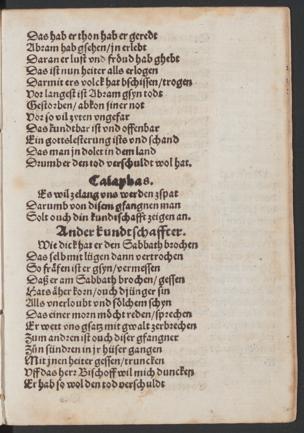 Das hab er thon hab er geredt
Abram hab gsehen/jn erlebt
Daran er lust vnd fröud hab ghebt
Das ist nun heiter alls erlogen
Darmit ers volck hat bschissen/trogen
Vor langest ist Abram gsyn todt
Gestorben/abkon siner not
Vor so vil zyten ungefar
Das kundtbar ist vnd offenbar
Ein gottslesterung ists vnd schand
Das man jn dolet in dem land
Drumb er den tod verschuldt wol hat.
Caiaphas.
Es wil zelang vns werden zspat
Darumb von disem gfangnen man
Solt ouch din kundtschafft zeigen an.
Ander kundtschaffter.
Wie dick hat er den Sabbath brochen
Das selb mit lügen dann vertrochen
So fräfen ist er gsyn/vermessen
Daß er am Sabbath brochen/gessen
Hats äher korn/ouch d jünger sin
Alls vnerloubt vnd sölchem schyn
Das einer morn möcht reden/sprechen
Er wett vns gsatz mit gwalt zerbrechen
Zum andren ist ouch diser gfangner
Zün sündren in jr hüser gangen
Mit jnen heiter gessen/truncken
Vff das herr Bischoff wil mich duncken
Er hab so wol den tod verschuldt